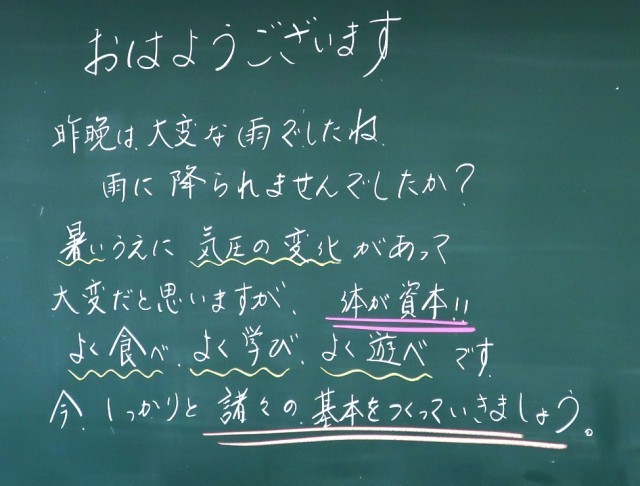 おはようございます
昨晩は大変な雨でしたね
雨に降られませんでしたか?
暑いうえに気圧の変化があって
大変だと思いますが、体が資本!!
よく食べ、よく学び、よく遊べです
今、しっかりと諸々の基本をつくっていきましょう。